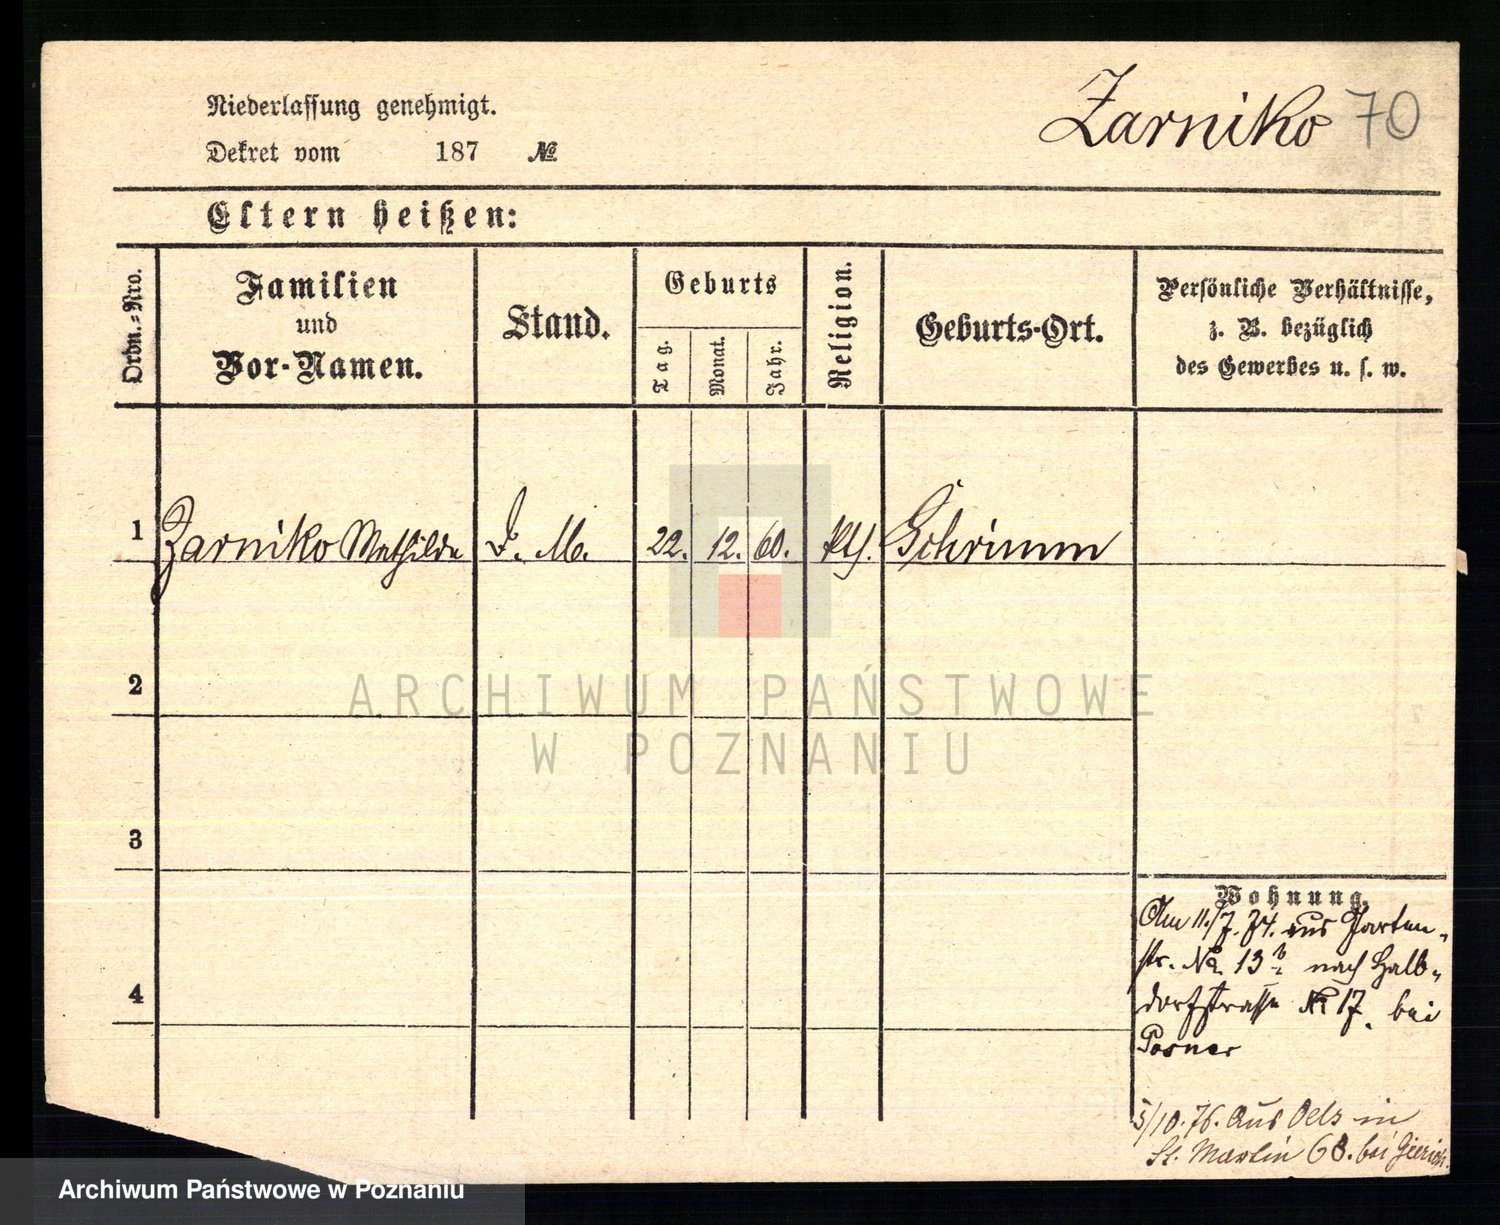 Niederlassung genehmigt.
Dekret vom 187 No
Zarniko 70
Eltern heißen:
Ordn.-Nro.
Familien
und
Vor-Namen.
Stand.
Geburts
Tag.
Monat.
Jahr.
Religion.
Geburts-Ort.
Persönliche Verhältnisse,
z. B. bezüglich
des Gewerbes u. s. w.
1 Zarniko Mathilde D. M. 22. 12. 60. Schrimm
2
3
4
Wohnung.
Am 11./7. 74. aus Garten-
str. No 13b nach Halb-
dorfstrasse No 17. bei
Posner
5/10. 76. Aus Oels in
St. Martin 68. bei
ARCHIWUM PAŃSTWOWE
W POZNANIU
Archiwum Państwowe w Poznaniu